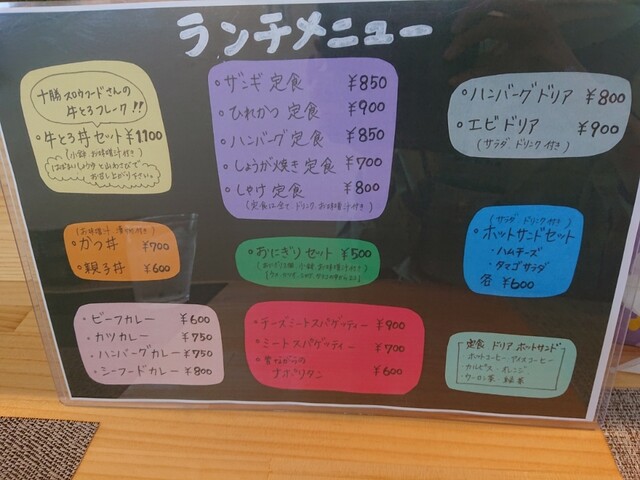 ランチメニュー
十勝スロウフードさんの
牛とろフレーク!!
・牛とろ丼セット ¥1100
(小鉢 お味噌汁付き)
・ザンギ定食 ¥850
・ひれかつ定食 ¥900
・ハンバーグ定食 ¥850
・しょうが焼き定食 ¥700
・しゃけ定食 ¥800
(定食は全て ドリンク、お味噌汁付き)
・ハンバーグドリア ¥800
・エビドリア ¥900
(サラダ ドリンク付き)
(お味噌汁 漬物付き)
・かつ丼 ¥700
・親子丼 ¥600
・おにぎりセット ¥500
(おにぎり2個 小鉢 お味噌汁付き)
(サラダ ドリンク付き)
・ホットサンドセット
・ハムチーズ
・タマゴサラダ
各 ¥600
・ビーフカレー ¥600
・カツカレー ¥750
・ハンバーグカレー ¥750
・シーフードカレー ¥800
・チーズミートスパゲッティー ¥900
・ミートスパゲッティー ¥700
・昔ながらの
ナポリタン ¥600
定食 ドリア ホットサンド
・ホットコーヒー アイスコーヒー
・カルピス・オレンジ
・ウーロン茶 緑茶